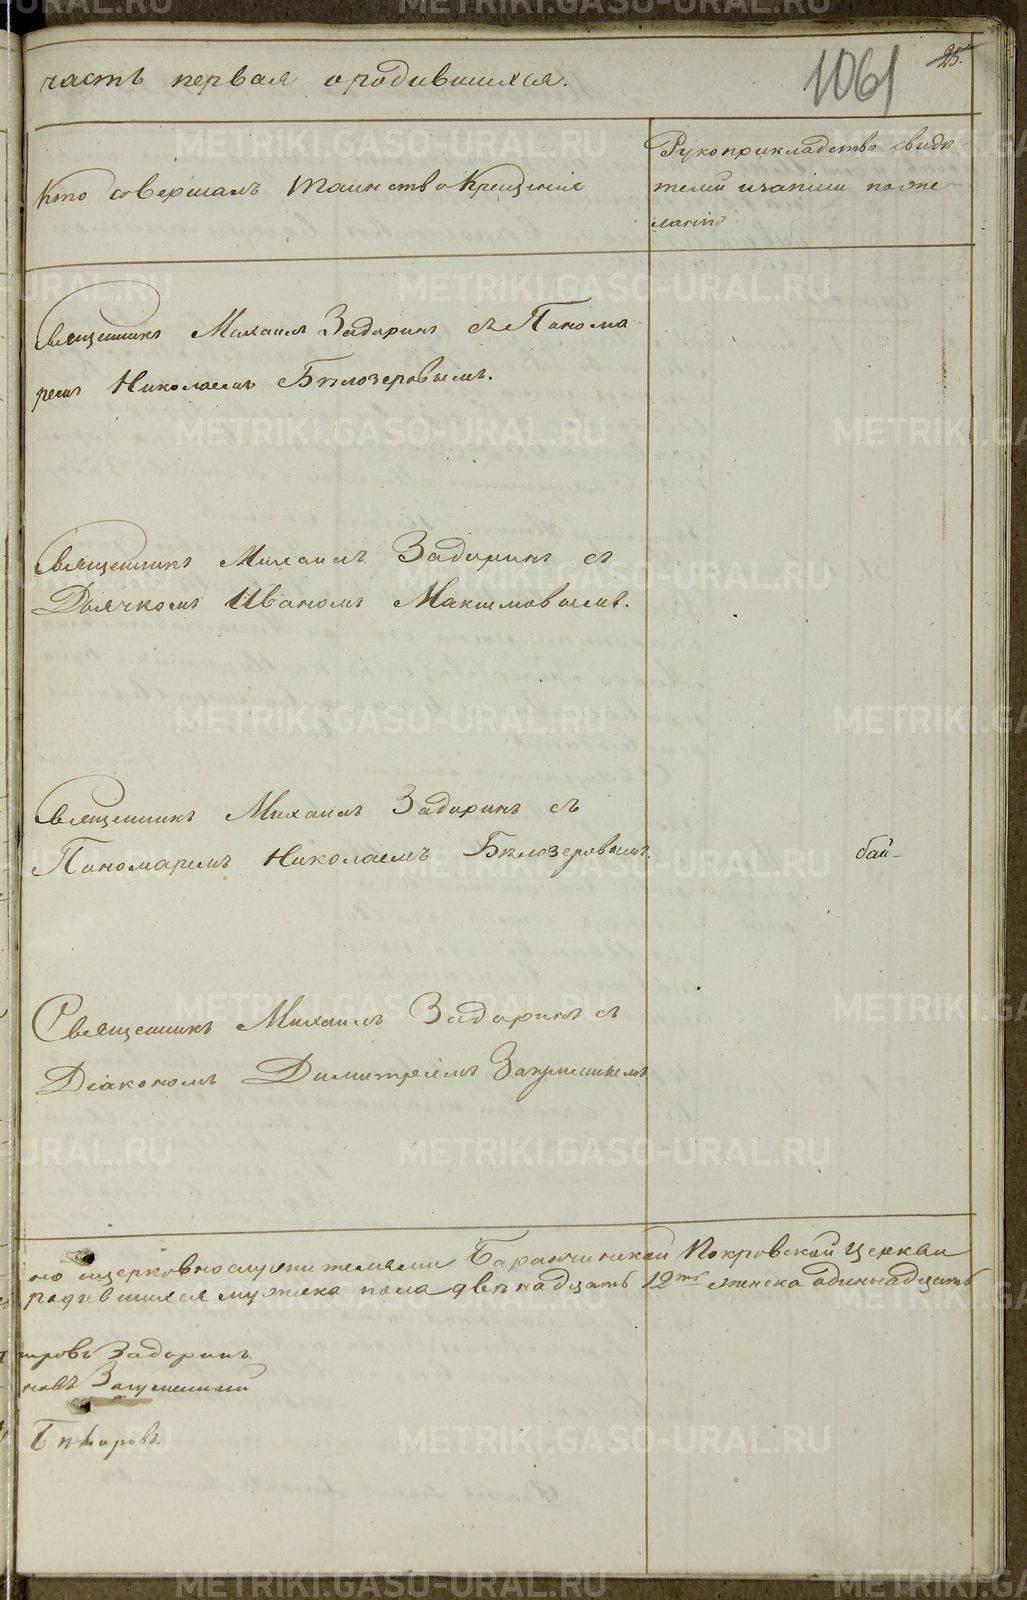 часть первая о родившихся.
1061
25.
Кто совершалъ таинство крещенія
Рукоприкладство свидѣ-
телей и записи по же-
ланію
Священникъ Михаилъ Задоринъ съ Понома
ремъ Николаемъ Бѣлозеровымъ.
Священникъ Михаилъ Задоринъ съ
Дьячкомъ Иваномъ Максимовымъ.
Священникъ Михаилъ Задоринъ съ
Пономаремъ Николаемъ Бѣлозеровымъ.
бай-
Священникъ Михаилъ Задоринъ съ
Діакономъ Димитріемъ
но и церковнослужителями Баранчинской Покровской Церкви
родившихся мужска пола двѣнадцать 12ть женска одиннадцать
тровъ Задоринъ
новъ
METRIKI.GASO-URAL.RU